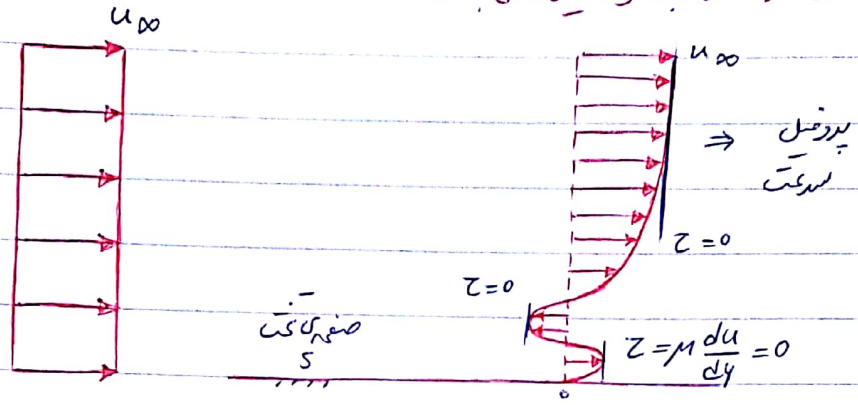 u∞
u∞
⇒ پروفیل
سرعت
τ=0
τ=0
صفحه‌ی تخت
s
τ=μ du/dy =0
0